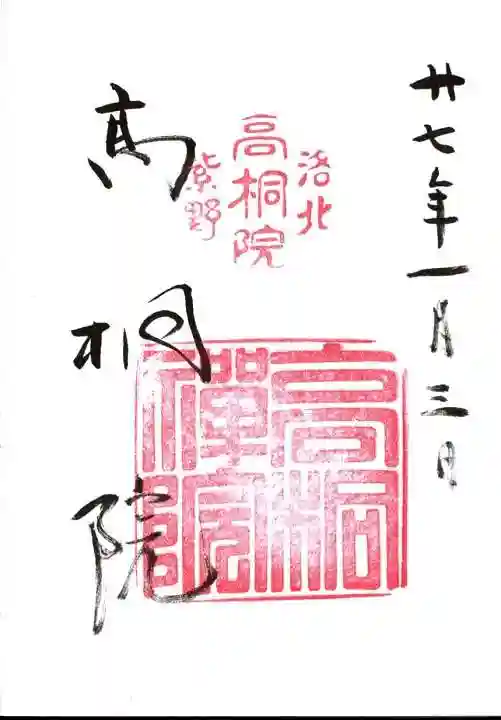 廿七年一月三日
洛北
高桐院
紫野
高桐
禅院
高桐院